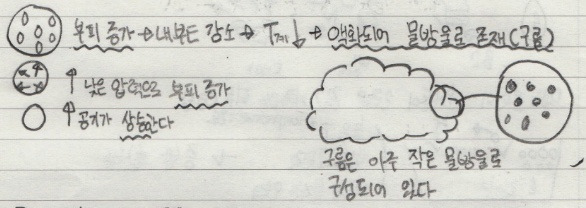 부피 증가 → 내부E 감소 → T계↓ → 액화되어 물방울로 존재(구름)
↑ 낮은 압력으로 부피 증가
↑ 공기가 상승한다
구름은 아주 작은 물방울로
구성되어 있다